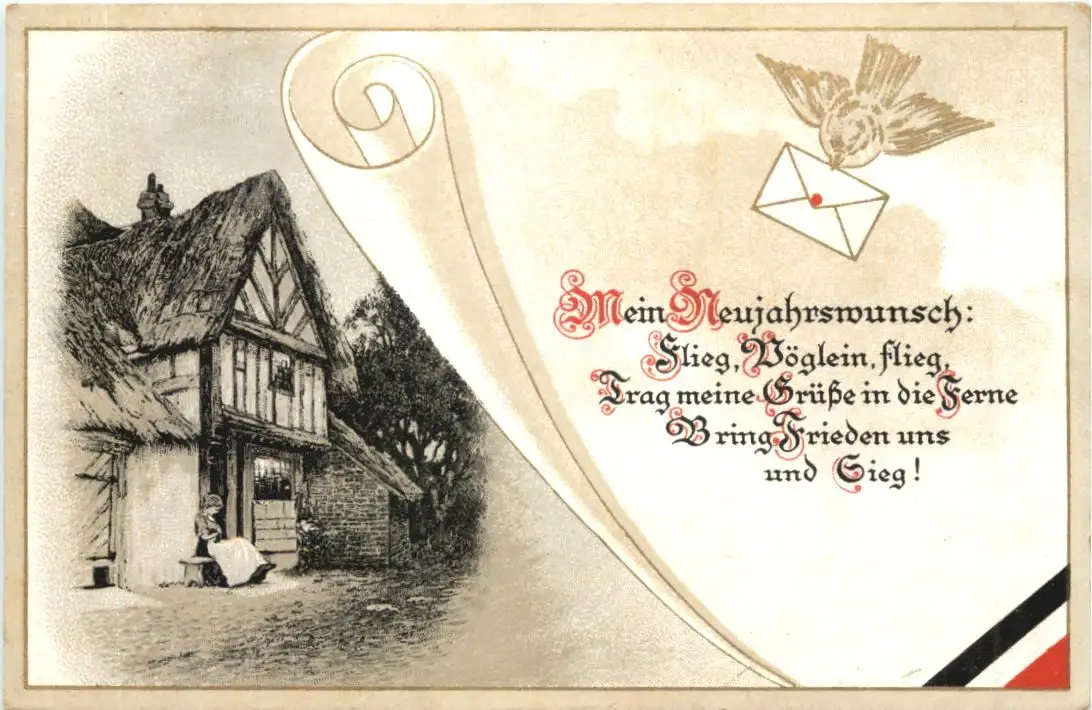 Mein Neujahrswunsch:
Flieg, Vöglein, flieg,
Trag meine Grüße in die Ferne
Bring Frieden uns
und Sieg!